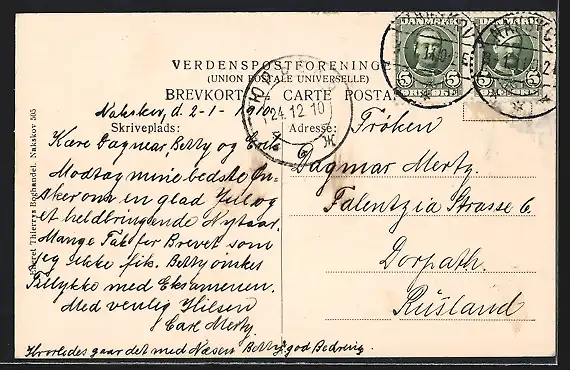 VERDENSPOSTFORENINGEN
(UNION POSTALE UNIVERSELLE)
BREVKORT = CARTE POSTALE
DANMARK
DANMARK
5 ØRE 5
5 ØRE 5
24 12 10
Nakskov, d. 2-1-1910
Skriveplads:
Adresse:
Eneret Thierrys Boghandel. Nakskov 505
Kære Dagmar, Betty og Erik
Modtag mine bedste Øn-
sker om en glad Jul og
et heldbringende Nytaar.
Mange Tak for Brevet som
jeg ikke fik. Betty ønskes
Tillykke med Eksamenen.
Med venlig Hilsen
Carl Mertz.
Hvorledes gaar det med Næsen Betty? god Bedring.
Frøken
Dagmar Mertz.
Falentzia Strasse 6.
Dorpath.
Rüsland